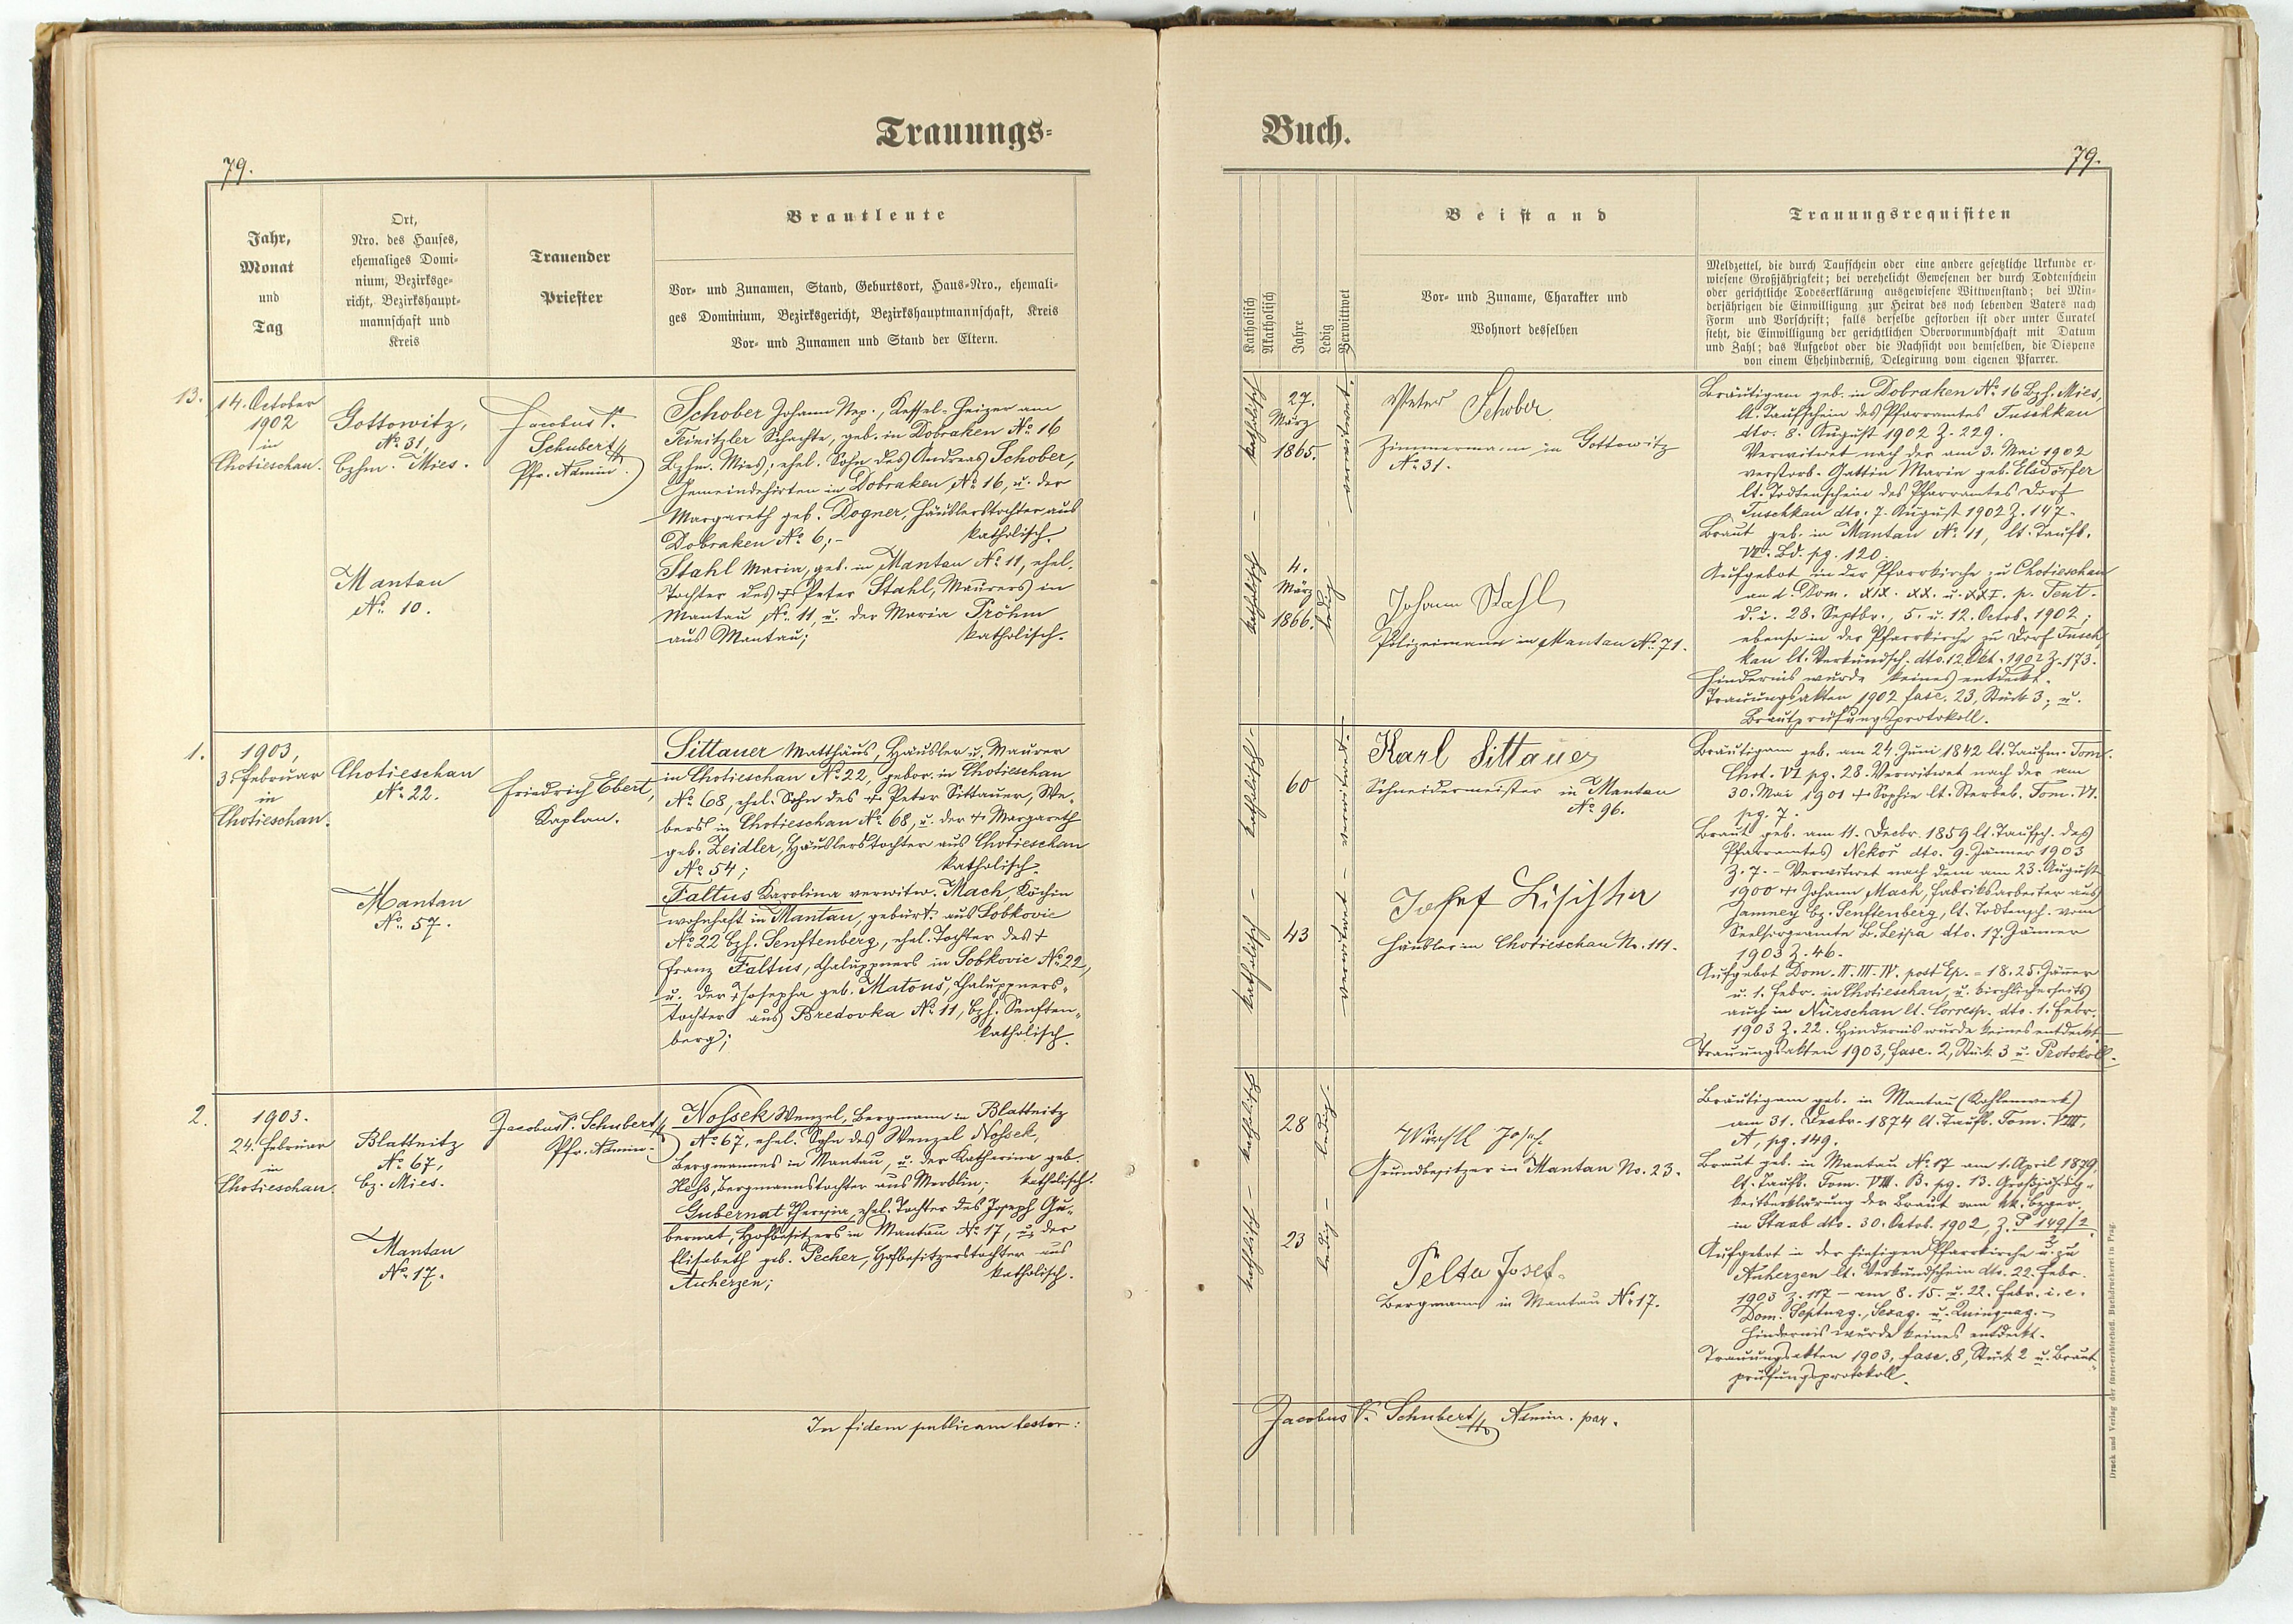 Trauungs-
79.
Jahr,
Monat
und
Tag
Ort,
Nro. des Hauses,
ehemaliges Domi-
nium, Bezirksge-
richt, Bezirkshaupt-
mannschaft und
Kreis
Trauender
Priester
Brautleute
Vor- und Zunamen, Stand, Geburtsort, Haus-Nro., ehemali-
ges Dominium, Bezirksgericht, Bezirkshauptmannschaft, Kreis
Vor- und Zunamen und Stand der Eltern.
13.
14. October
1902
in
Chotieschau.
Gottowitz,
No 31
bzhm. Mies.
Mantau
No. 10.
Jacobus V.
Schubert
Pfr. Admin.
Schober Johann Nep., Kessel-Heizer am
Teinitzler Schachte, geb. in Dobraken No 16
Bzhm. Mies, ehel. Sohn des Andreas Schober,
Gemeindehirten in Dobraken, No 16, u. der
Margareth geb. Dogner, Häuslerstochter aus
Dobraken No 6;- katholisch.
Stahl Maria, geb. in Mantau No 11, ehel.
Tochter des + Peter Stahl, Maurers in
Mantau No. 11, u. der Maria Pröhm
aus Mantau; katholisch.
1.
1903,
3. Februar
in
Chotieschau.
Chotieschau
No 22.
Mantau
No. 57.
Friedrich Ebert,
Kaplan.
Sittauer Matthäus, Häusler u. Maurer
in Chotieschau No 22, gebor. in Chotieschau
No 68, ehel. Sohn des + Peter Sittauer, We-
bers in Chotieschau No 68, u. der + Margareth
geb. Zeidler, Häuslerstochter aus Chotieschau
No 54; katholisch.
Faltus Karolina verwitw. Mach, Köchin
wohnhaft in Mantau, gebürt. aus Sobkovic
No 22 bzh. Senftenberg, ehel. Tochter des +
Franz Faltus, Chaluppners in Sobkovic No 22,
u. der + Josepha geb. Matouš, Chaluppners-
tochter aus Bredovka No 11, bzh. Senften-
berg; katholisch.
2.
1903.
24. Februar
in
Chotieschau.
Blattnitz
No 67,
bz. Mies.
Mantau
No. 17.
Jacobus V. Schubert
Pfr. Admin.
Nohsek Wenzel, Bergmann in Blattnitz
No 67, ehel. Sohn des Wenzel Nohsek,
Bergmannes in Mantau, u. der Katharina geb.
Hess, Bergmannstochter aus Merklin; katholisch.
Gubernat Theresia, ehel. Tochter des Joseph Gu-
bernat, Hofbesitzers in Mantau No 17, u. der
Elisabeth geb. Pecher, Hofbesitzerstochter aus
Auherzen; katholisch.
In fidem publicam testor:
Buch.
79.
Katholisch
Akatholisch
Jahre
Ledig
Verwittwet
Beistand
Vor- und Zuname, Charakter und
Wohnort desselben
Trauungsrequisiten
Meldzettel, die durch Taufschein oder eine andere gesetzliche Urkunde er-
wiesene Großjährigkeit; bei verehelicht Gewesenen der durch Todtenschein
oder gerichtliche Todeserklärung ausgewiesene Wittwenstand; bei Min-
derjährigen die Einwilligung zur Heirat des noch lebenden Vaters nach
Form und Vorschrift; falls derselbe gestorben ist oder unter Curatel
steht, die Einwilligung der gerichtlichen Obervormundschaft mit Datum
und Zahl; das Aufgebot oder die Nachsicht von demselben, die Dispens
von einem Ehehinderniß, Delegirung vom eigenen Pfarrer.
katholisch
27.
März
1865.
verwitwet.
Peter Schober
Zimmermann in Gottowitz
No 31.
katholisch
4.
März
1866.
ledig
Johann Stahl
Polizeimann in Mantau No. 71.
Bräutigam geb. in Dobraken No 16 Bzh. Mies,
lt. Taufschein des Pfarramtes Tuschkau
dto. 8. August 1902 Z. 229.
Verwitwet nach der am 3. Mai 1902
verstorb. Gattin Maria geb. Elsdörfer
lt. Todtenschein des Pfarramtes Dorf
Tuschkau dto. 7. August 1902 Z. 147.
Braut geb. in Mantau No 11, lt. Taufb.
Bd. pg. 120.
Aufgebot in der Pfarrkirche zu Chotieschau
an d. Dom. XIX. XX. u. XXI. p. Pent.
d. i. 28. Septbr., 5. u. 12. Octob. 1902;
ebenso in der Pfarrkirche zu Dorf Tusch-
kau lt. Verkündsch. dto. 12. Okt. 1902 Z. 173.
Hindernis wurde keines entdeckt.
Trauungsakten 1902 fasc. 23, Stück 3, u.
Brautprüfungsprotokoll.
katholisch.
60
verwitwet.
Karl Sittauer
Schneidermeister in Mantau
No 96.
katholisch
43
verwitwet
Josef
Häusler in Chotieschau No. 111.
Bräutigam geb. am 24. Juni 1842 lt. Taufm. Tom.
Chot. VI pg. 28. Verwitwet nach der am
30. Mai 1901 + Sophie lt. Sterbeb. Tom. VI.
pg. 7.
Braut geb. am 11. Decbr. 1859 lt. Taufsch. des
Pfarramtes Nekoř dto. 9. Jänner 1903
Z. 7. - Verwitwet nach dem am 23. August
1900 + Johann Mach, Fabriksarbeiter aus
Jamney bz. Senftenberg, lt. Todtensch. vom
Seelsorgeamte B. Leipa dto. 17. Jänner
1903 Z. 46.
Aufgebot Dom. II. III. IV. post Ep. = 18. 25. Jäner
u. 1. Febr. in Chotieschau, u. kirchlicherseits
auch in Nürschan lt. Corresp. dto. 1. Febr.
1903 Z. 22. Hindernis wurde keines entdeckt.
Trauungsakten 1903, fasc. 2, Stück 3 u. Protokoll.
katholisch
28
ledig.
Würstl Josef
Grundbesitzer in Mantau No. 23.
katholisch
23
ledig
Pelta Josef.
Bergmann in Mantau No. 17.
Bräutigam geb. in Mantau (Kohlenwerk)
am 31. Decbr. 1874 lt. Taufb. Tom. VIII,
A, pg. 149.
Braut geb. in Mantau No 17 am 1. April 1879
lt. Taufb. Tom. VIII. B. pg. 13. Großjährig-
keitserklärung der Braut vom kk. Bzger.
in Staab dto. 30. Octob. 1902, Z. P 149/2
2
Aufgebot in der hiesigen Pfarrkirche u. zu
Auherzen lt. Verkündschein dto. 22. Febr.
1903 Z. 117 - am 8. 15. u. 22. Febr. i. e.
Dom. Septuag., Sexag. u. Quinquag. -
Hindernis wurde keines entdeckt.
Trauungsakten 1903, fasc. 8, Stück 2 u. Braut-
prüfungsprotokoll.
Jacobus V. Schubert Admin. par.
Druck und Verlag der fürst-erzbischöfl. Buchdruckerei in Prag.